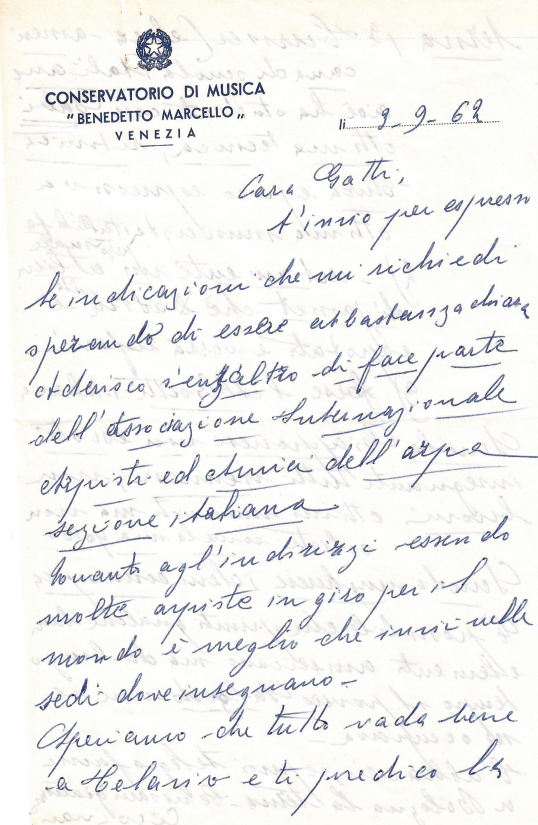 CONSERVATORIO DI MUSICA
"BENEDETTO MARCELLO"
VENEZIA
li 9-9-62
Cara Gatti,
t'invio per espresso
le indicazioni che mi richiedi
sperando di essere abbastanza chiara
Aderisco senz'altro di fare parte
dell'Associazione Internazionale
Arpisti ed Amici dell'arpa
sezione italiana
Quanto agl'indirizzi essendo
molte arpiste in giro per il
mondo è meglio che invii nelle
sedi dove insegnano -
Speriamo che tutto vada bene
a e ti predico la